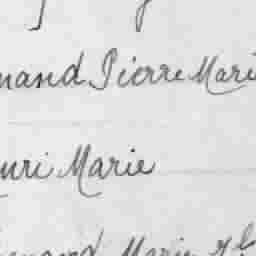 mand Pierre Mari
nri Marie
Marie